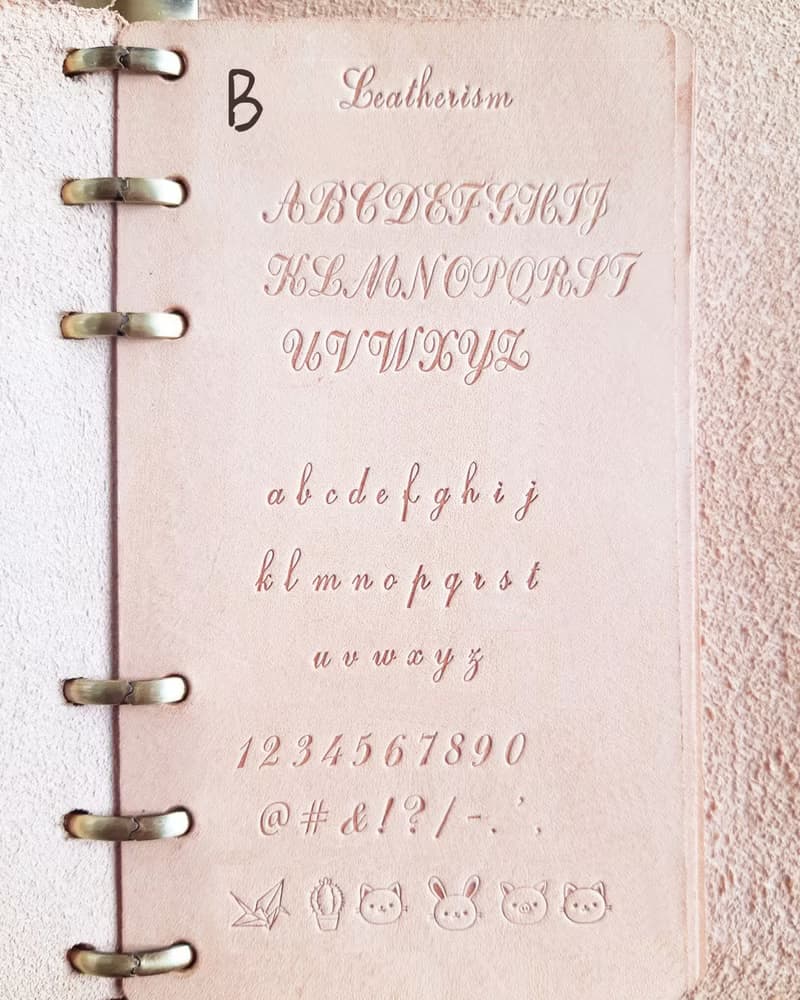 B
Leatherism
ABCDEFGHIJ
KLMNOPQRST
UVWXYZ
a b c d e f g h i j
k l m n o p q r s t
u v w x y z
1 2 3 4 5 6 7 8 9 0
@ # & ! ? / - . ' .